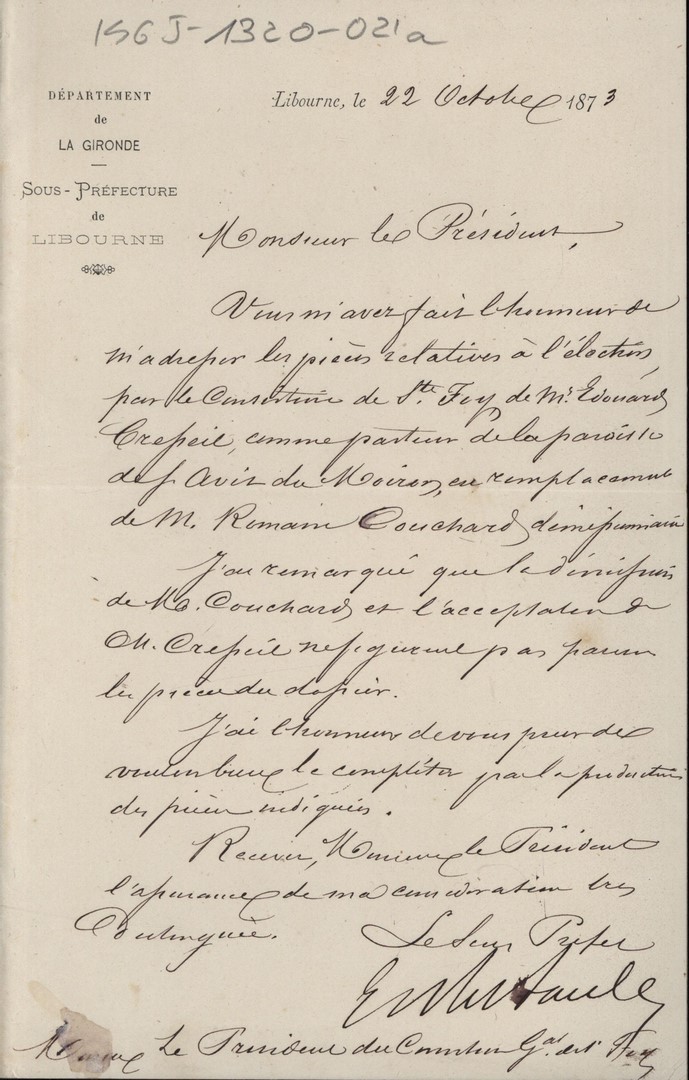 1SGJ-1320-021a
DÉPARTEMENT
de
LA GIRONDE
SOUS-PRÉFECTURE
de
LIBOURNE
Libourne, le 22 Octobre 1873
Monsieur le Président,
Vous m'avez fait l'honneur de
m'adresser les pièces relatives à l'élection,
par le Consistoire de Ste Foy, de Mr. Edouard
Crespeil, comme pasteur de la paroisse
de St Avit du Moiron, en remplacement
de M. Romain Couchard, démissionnaire
J'ai remarqué que la démission
de M. Couchard et l'acceptation de
M. Crespeil ne figurent pas parmi
les pièces du dossier.
J'ai l'honneur de vous prier de
vouloir bien le compléter par la production
des pièces indiquées.
Recevez, Monsieur le Président
l'assurance de ma considération très
distinguée.
Le Sous Préfet
Monsieur Le Président du Consistoire Gal de Ste Foy